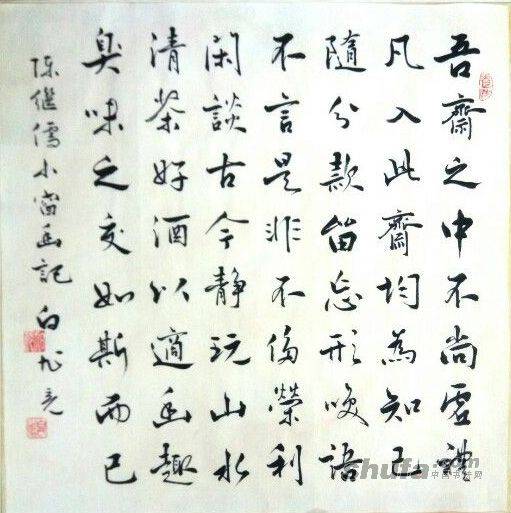 吾齋之中不尚虛禮
凡入此齋均為知己
隨分款留忘形咲語
不言是非不侈榮利
閑談古今静玩山水
清茶好酒以適幽趣
臭味之交如斯而已
陳繼儒小窗幽記 白旭
shufa.com
中国书法网